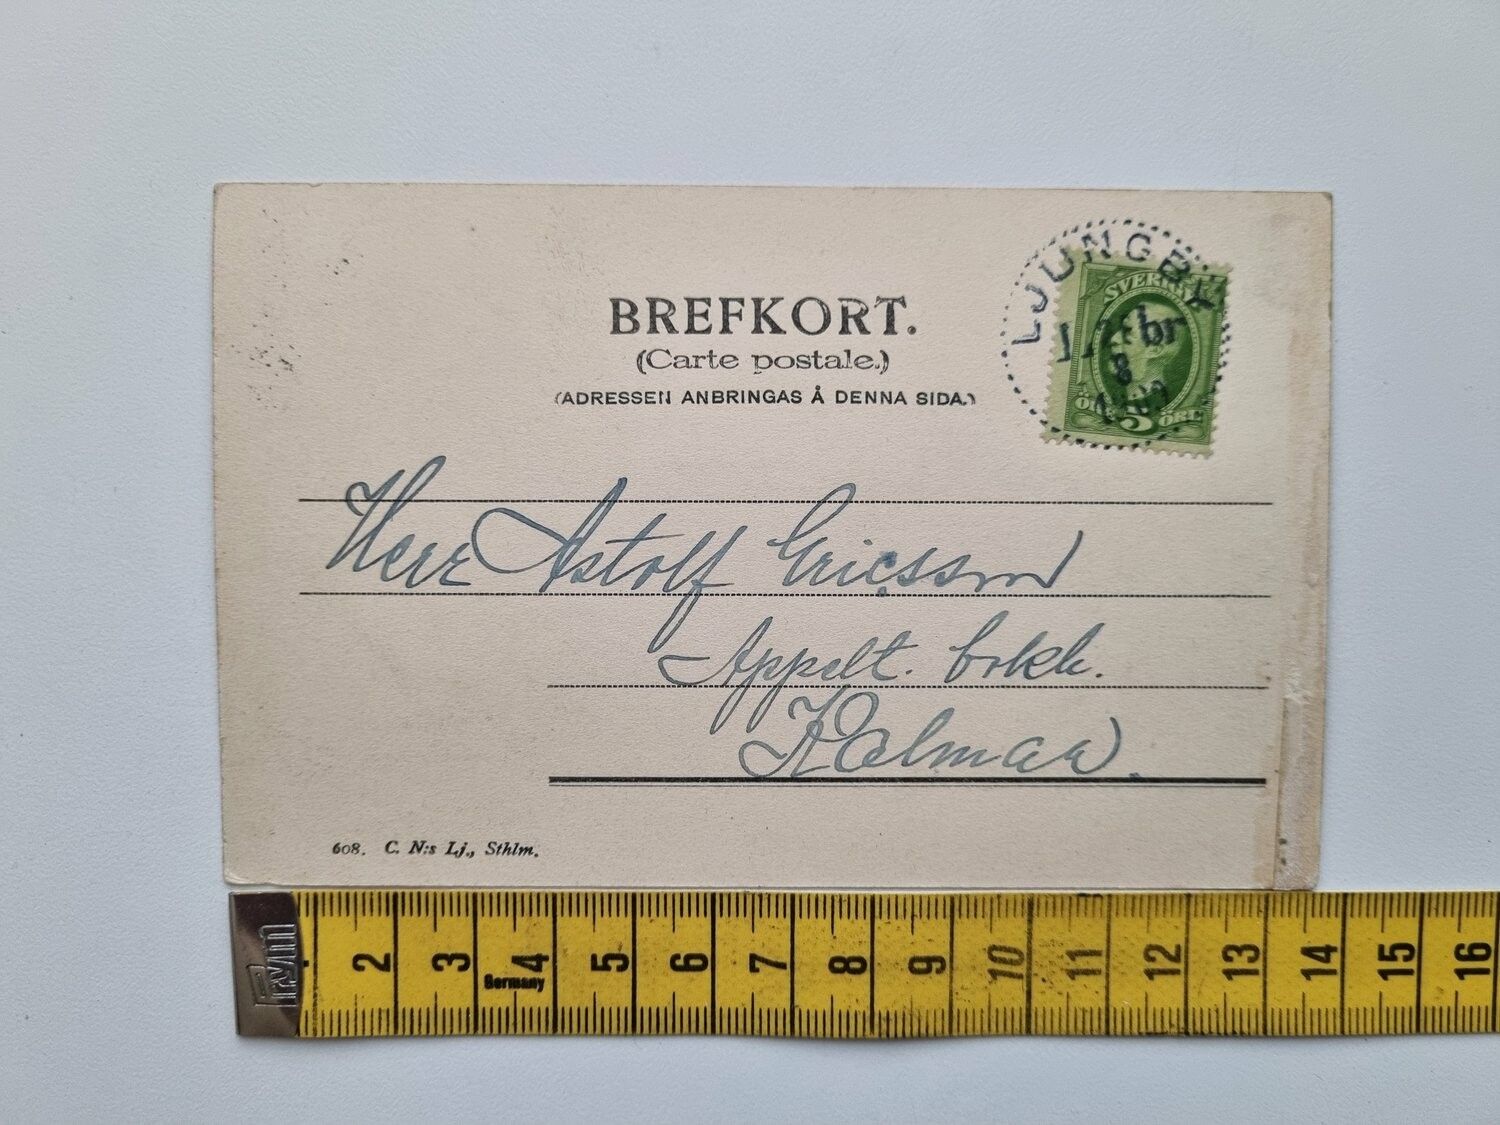 BREFKORT.
(Carte postale.)
(ADRESSEN ANBRINGAS Å DENNA SIDA.)
LJUNGBY
SVERIGE
5 ÖRE
Herr Astolf Ericsson
Appelt. bokh.
Kalmar.
608. C. N:s Lj., Sthlm.
2 3 4 5 6 7 8 9 10 11 12 13 14 15 16
Germany